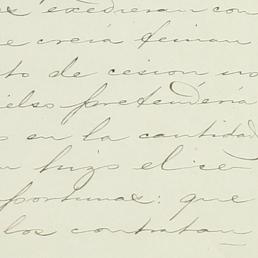 excedieran con
e creia tenian
to de cesion no
ielso pretenderia
s en la cantidad
hizo el se
portunas: que
los contratan